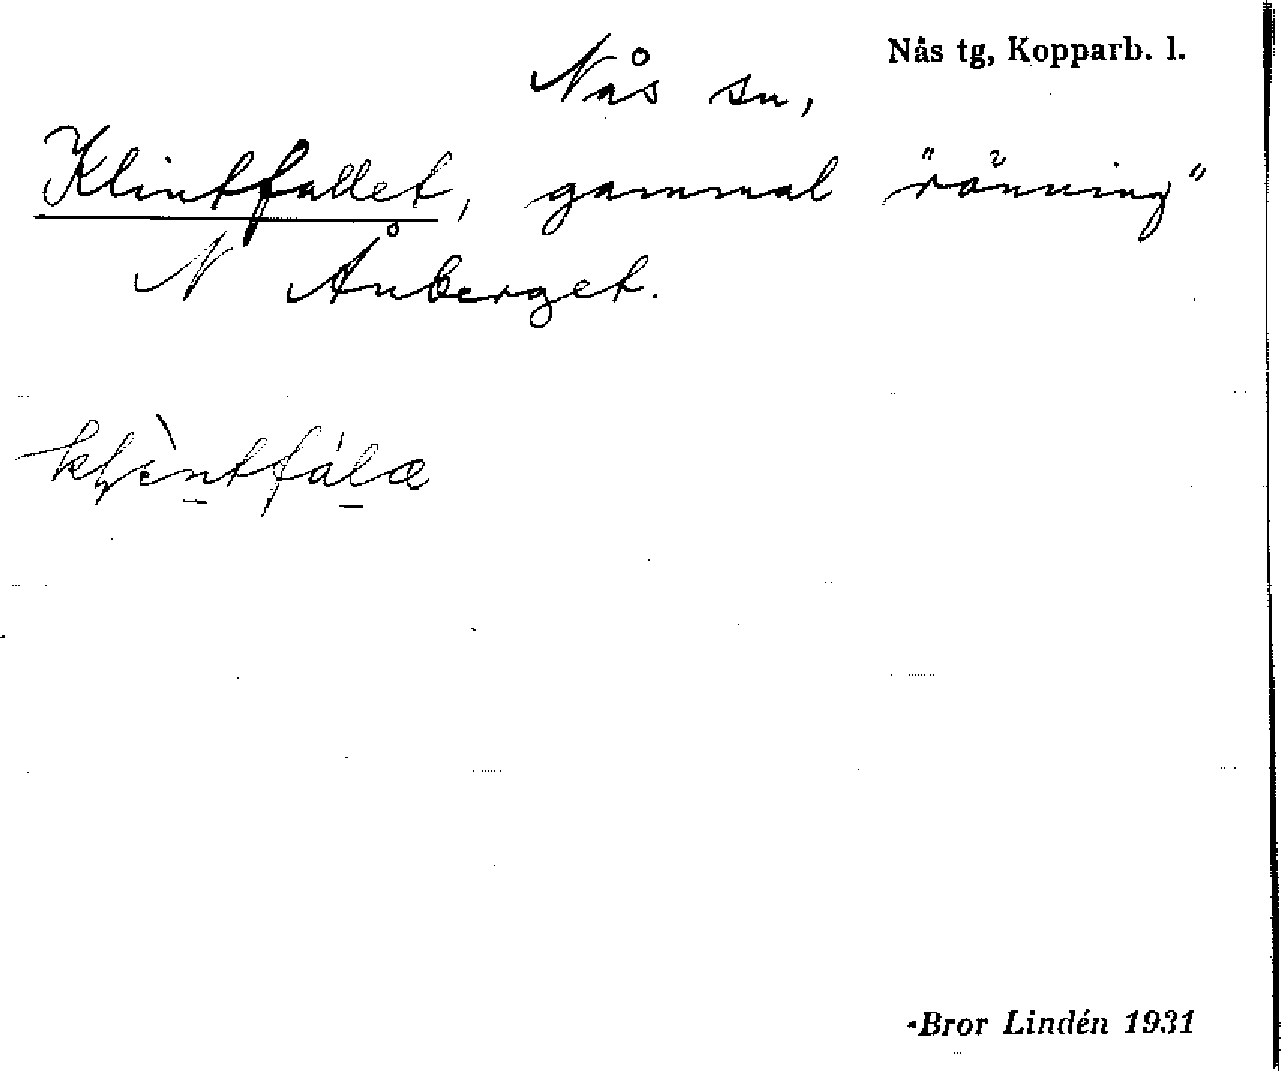 Nås tg, Kopparb. l.
Nås sn,
Klintfallet, gammal "rönning"
N Ånberget.
Bror Lindén 1931